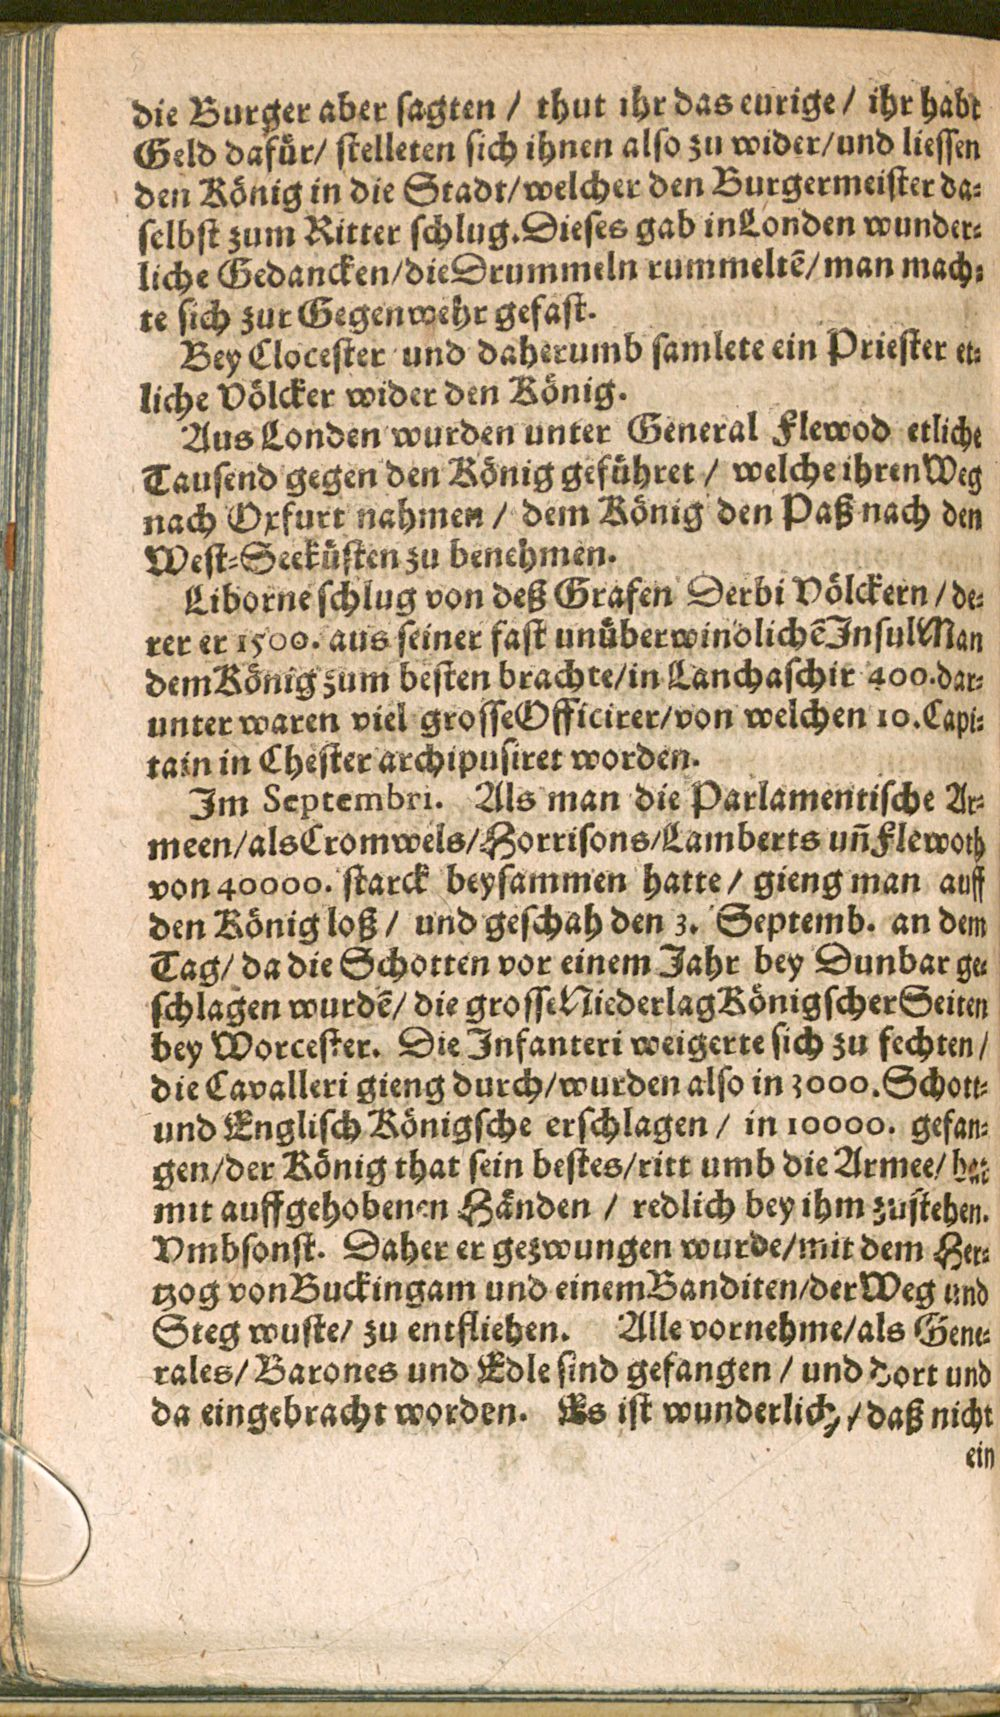 die Burger aber sagten / thut ihr das eurige / ihr habt
Geld dafür/ stelleten sich ihnen also zu wider/und liessen
den König in die Stadt/welcher den Burgermeister da-
selbst zum Ritter schlug. Dieses gab in Londen wunder-
liche Gedancken/die Drummeln rummeltẽ/man mach-
te sich zur Gegenwehr gefast.
Bey Clocester und daherumb samlete ein Priester et-
liche Völcker wider den König.
Aus Londen wurden unter General Flewod etliche
Tausend gegen den König geführet / welche ihren Weg
nach Oxfurt nahmen / dem König den Paß nach den
West-Seeküsten zu benehmen.
Liborne schlug von deß Grafen Derbi Völckern / de-
rer er 1500. aus seiner fast unüberwindlichẽ Insul Man
dem König zum besten brachte/in Lanchaschir 400. dar-
unter waren viel grosse Officirer/von welchen 10. Capi-
tain in Chester archipusiret worden.
Im Septembri. Als man die Parlamentische Ar-
meen/als Cromwels/Horrisons/Lamberts uñ Flewoth
von 40000. starck beysammen hatte / gieng man auff
den König loß / und geschah den 3. Septemb. an dem
Tag/ da die Schotten vor einem Jahr bey Dunbar ge-
schlagen wurdẽ/ die grosse Niederlag Königscher Seiten
bey Worcester. Die Infanteri weigerte sich zu fechten /
die Cavalleri gieng durch/wurden also in 3000. Schott-
und Englisch Königsche erschlagen / in 10000. gefan-
gen/der König that sein bestes/ritt umb die Armee/ bat
mit auffgehobenen Händen / redlich bey ihm zustehen.
Vmbsonst. Daher er gezwungen wurde/mit dem Her-
tzog von Buckingam und einem Banditen/der Weg und
Steg wuste/ zu entfliehen. Alle vornehme/als Gene-
rales/ Barones und Edle sind gefangen / und dort und
da eingebracht worden. Es ist wunderlich / daß nicht
ein